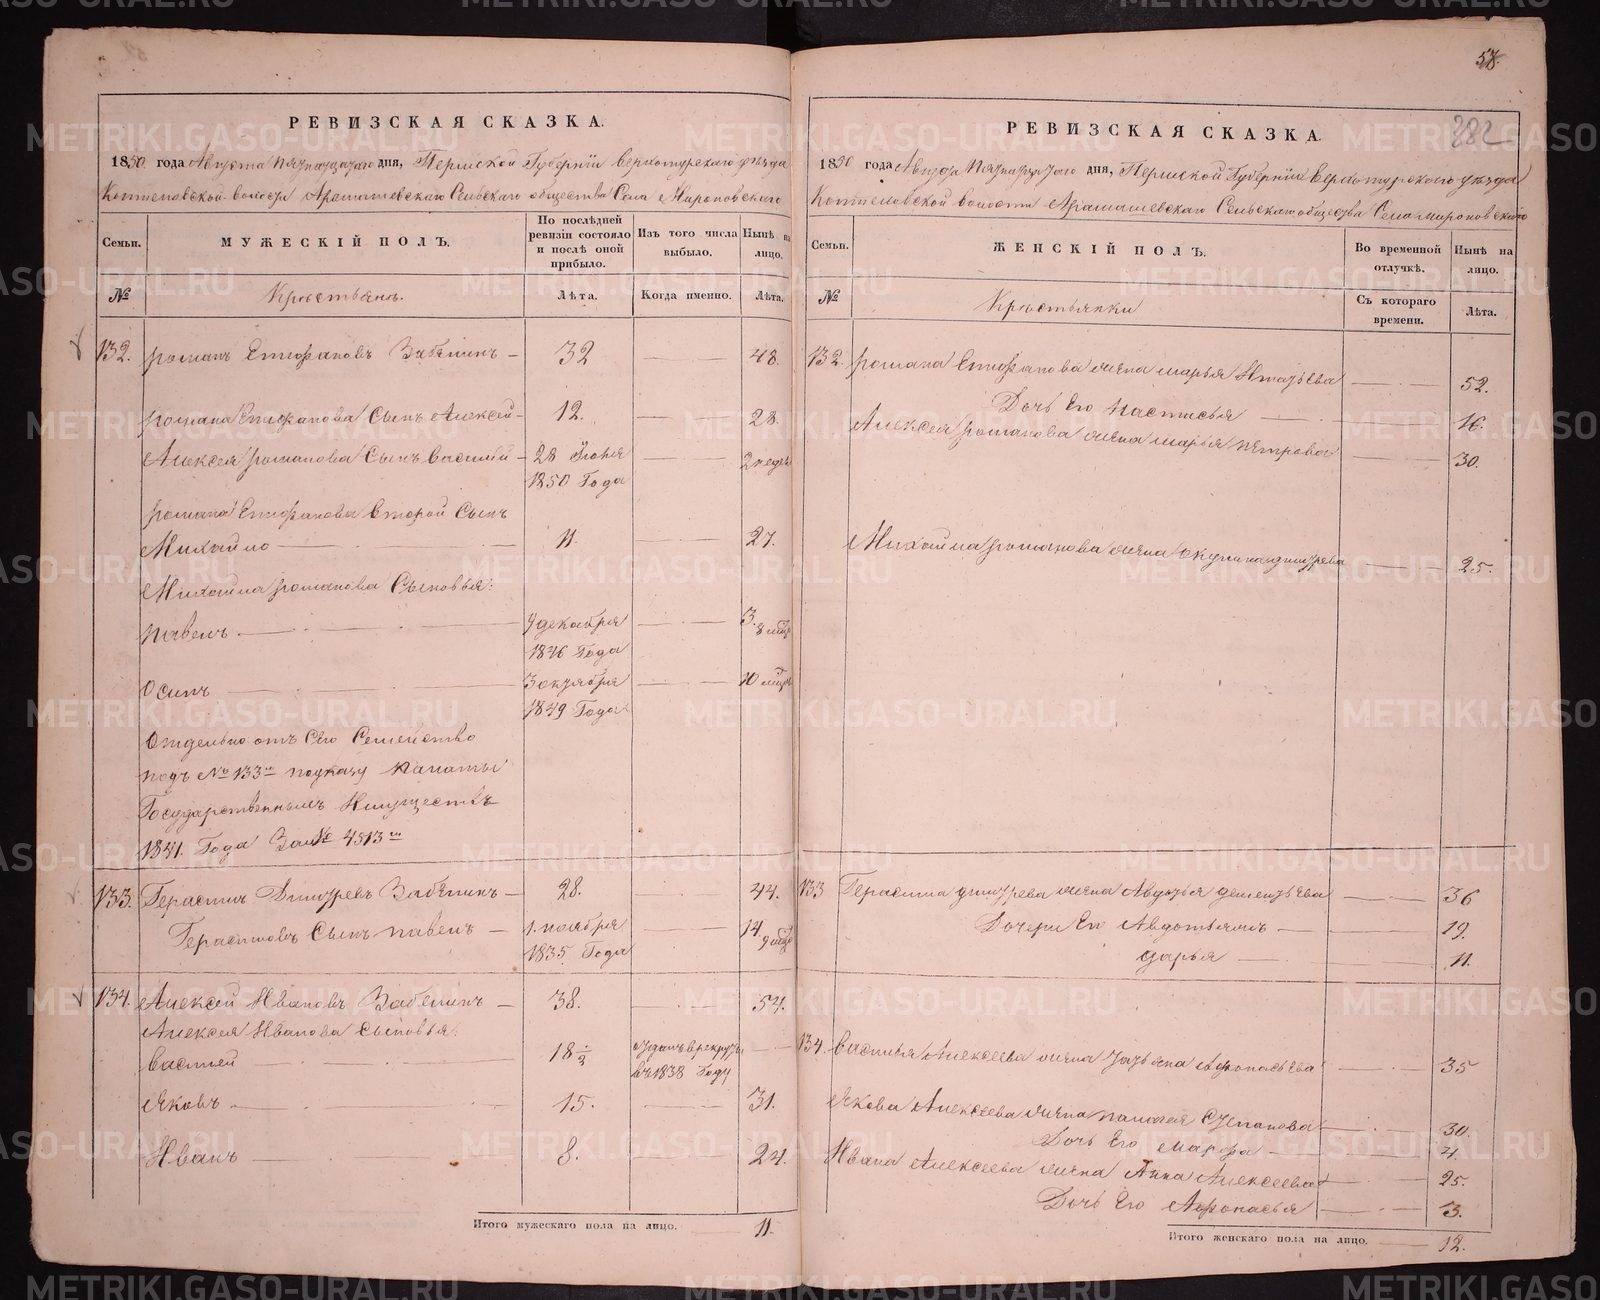 РЕВИЗСКАЯ СКАЗКА.
1850 года Августа пятнадцатого дня, Пермской Губернiи Верхотурского уѣзда
Коптеловской волости Арамашевскаго Сельскаго общества Села Мироновскаго
Семьи. МУЖЕСКIЙ ПОЛЪ. По послѣдней ревизiи состояло и послѣ оной прибыло. Изъ того числа выбыло. Нынѣ на лицо.
№ Крестьянъ. Лѣта. Когда именно. Лѣта.
132. романъ Епифановъ Забѣлинъ 32 48.
романа Епифанова Сынъ Алексей 12. 28.
Алексея романова Сынъ василiй 28 Iюня 2 недѣл
1850 Года
романа Епифанова второй Сынъ
Михайло 11. 27.
Михайла романова Сыновья:
павелъ 9 декабря 3. 8 мѣс
1846 Года
Осипъ 3 октября 10 мѣс
1849 Года
Отдельно отъ Сего Семейство
подъ № 133 м по указу палаты
Государственныхъ Имуществъ
1841. Года За № 4513 м
133. Герасимъ Дмитревъ Забѣлинъ 28. 44.
Герасимовъ Сынъ павелъ 1. ноября 14 9 мѣс
1835 Года
134. Алексей Ивановъ Забелинъ 38. 54.
Алексея Иванова Сыновья:
василей 18 1/2 отданъ в рекруты
въ 1838 Году
Яковъ 15. 31.
Иванъ 8. 24.
Итого мужескаго пола на лицо. 11.
58.
282
РЕВИЗСКАЯ СКАЗКА.
1850 года Августа Пятнатцатого дня, Пермской Губернiи Верхотурского уѣзда
Коптеловской волости Арамашевскаго Сельскаго общества Села мироновскаго
Семьи. ЖЕНСКIЙ ПОЛЪ. Во временной отлучкѣ. Нынѣ на лицо.
№ Крестьянки Съ котораго времени. Лѣта.
132 романа Епифанова жена марья Игнатьева 52.
Дочь Его настасья 16.
Алексея романова жена марья петрова 30.
Михайла романова жена окулина дмитрева 25.
133 Герасима дмитрева жена Авдотья дементьева 36
Дочери Его Авдотья 19.
дарья 11.
134. василья Алексеева жена татьяна Афонасьева 35
Якова Алексеева жена палагея Степанова 30.
Дочь Его марфа 4.
Ивана Алексеева жена Анна Алексеева 25.
Дочь Его Афонасья 3.
Итого женскаго пола на лицо. 12.
METRIKI.GASO-URAL.RU